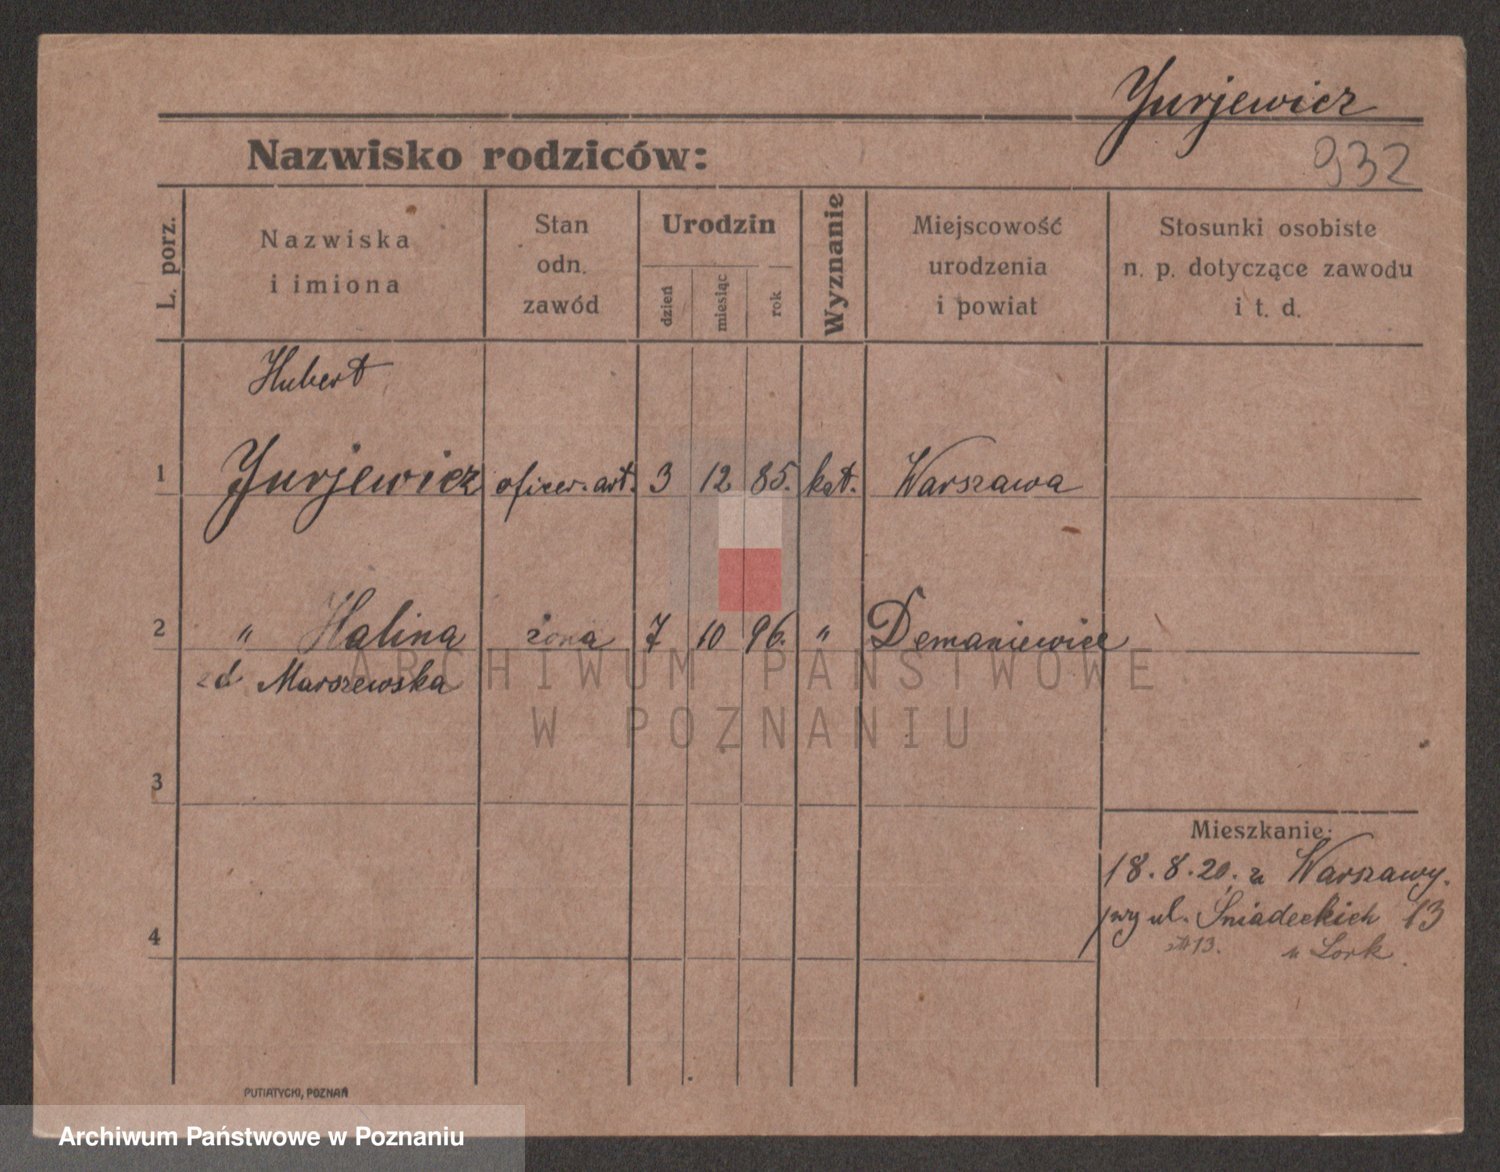 Yurjewicz
932
Nazwisko rodziców:
L. porz.
Nazwiska
i imiona
Stan
odn.
zawód
Urodzin
dzień
miesiąc
rok
Wyznanie
Miejscowość
urodzenia
i powiat
Stosunki osobiste
n. p. dotyczące zawodu
i t. d.
Hubert
1 Yurjewicz oficer. art. 3 12 85. kat. Warszawa
2 " Halina żona 7 10 96. " Demaniewice
zd Marszewska
ARCHIWUM PAŃSTWOWE
W POZNANIU
3
Mieszkanie:
18.8.20. z Warszawy.
przy ul. Śniadeckich 13
13. u Lork.
4
PUTIATYCKI, POZNAŃ
Archiwum Państwowe w Poznaniu